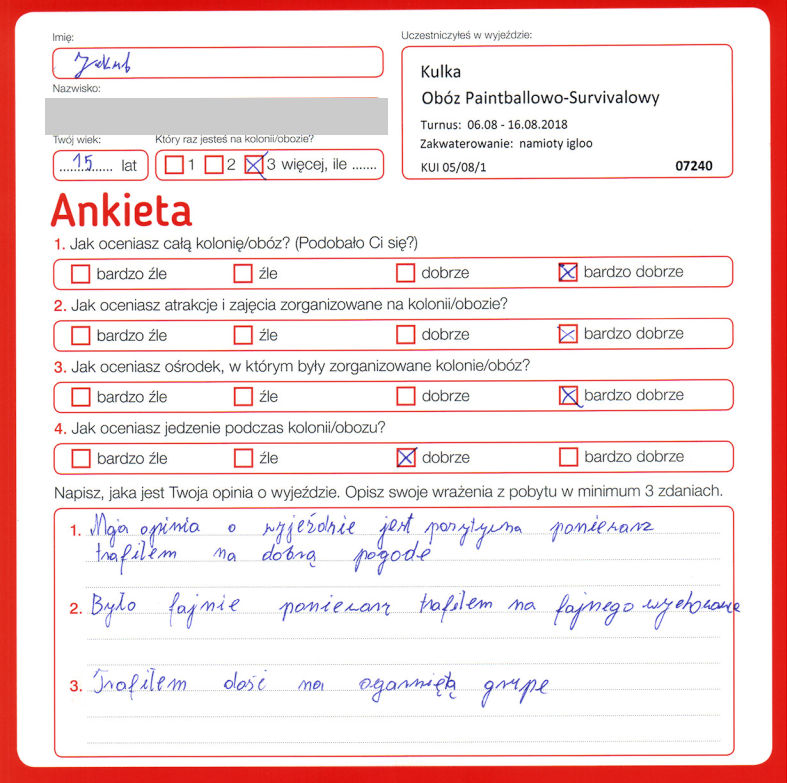 Imię:
Jakub
Nazwisko:
Twój wiek:
15 lat
Który raz jesteś na kolonii/obozie?
1 2 3 więcej, ile .......
Uczestniczyłeś w wyjeździe:
Kulka
Obóz Paintballowo-Survivalowy
Turnus: 06.08 - 16.08.2018
Zakwaterowanie: namioty igloo
KUI 05/08/1 07240
Ankieta
1. Jak oceniasz całą kolonię/obóz? (Podobało Ci się?)
bardzo źle źle dobrze bardzo dobrze
2. Jak oceniasz atrakcje i zajęcia zorganizowane na kolonii/obozie?
bardzo źle źle dobrze bardzo dobrze
3. Jak oceniasz ośrodek, w którym były zorganizowane kolonie/obóz?
bardzo źle źle dobrze bardzo dobrze
4. Jak oceniasz jedzenie podczas kolonii/obozu?
bardzo źle źle dobrze bardzo dobrze
Napisz, jaka jest Twoja opinia o wyjeździe. Opisz swoje wrażenia z pobytu w minimum 3 zdaniach.
1. Moja opinia o wyjeździe jest pozytywna ponieważ
trafiłem na dobrą pogode
2. Było fajnie ponieważ trafiłem na fajnego wychowawce
3. Trafiłem dość na ogarniętą grupe